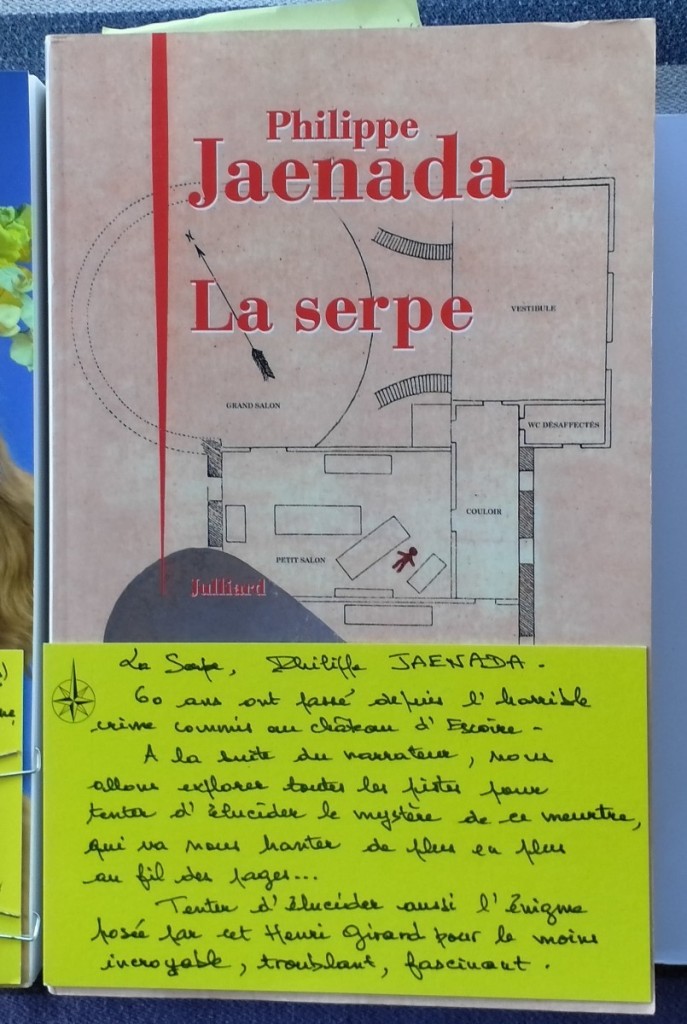 Philippe
Jaenada
La serpe
N
VESTIBULE
GRAND SALON
WC DÉSAFFECTÉS
COULOIR
PETIT SALON
Julliard
La Serpe, Philippe JAENADA.
60 ans ont passé depuis l'horrible
crime commis au château d'Escoire.
A la suite du narrateur, nous
allons explorer toutes les pistes pour
tenter d'élucider le mystère de ce meurtre,
qui va nous hanter de plus en plus
au fil des pages...
Tenter d'élucider aussi l'énigme
posée par cet Henri Girard pour le moins
incroyable, troublant, fascinant.